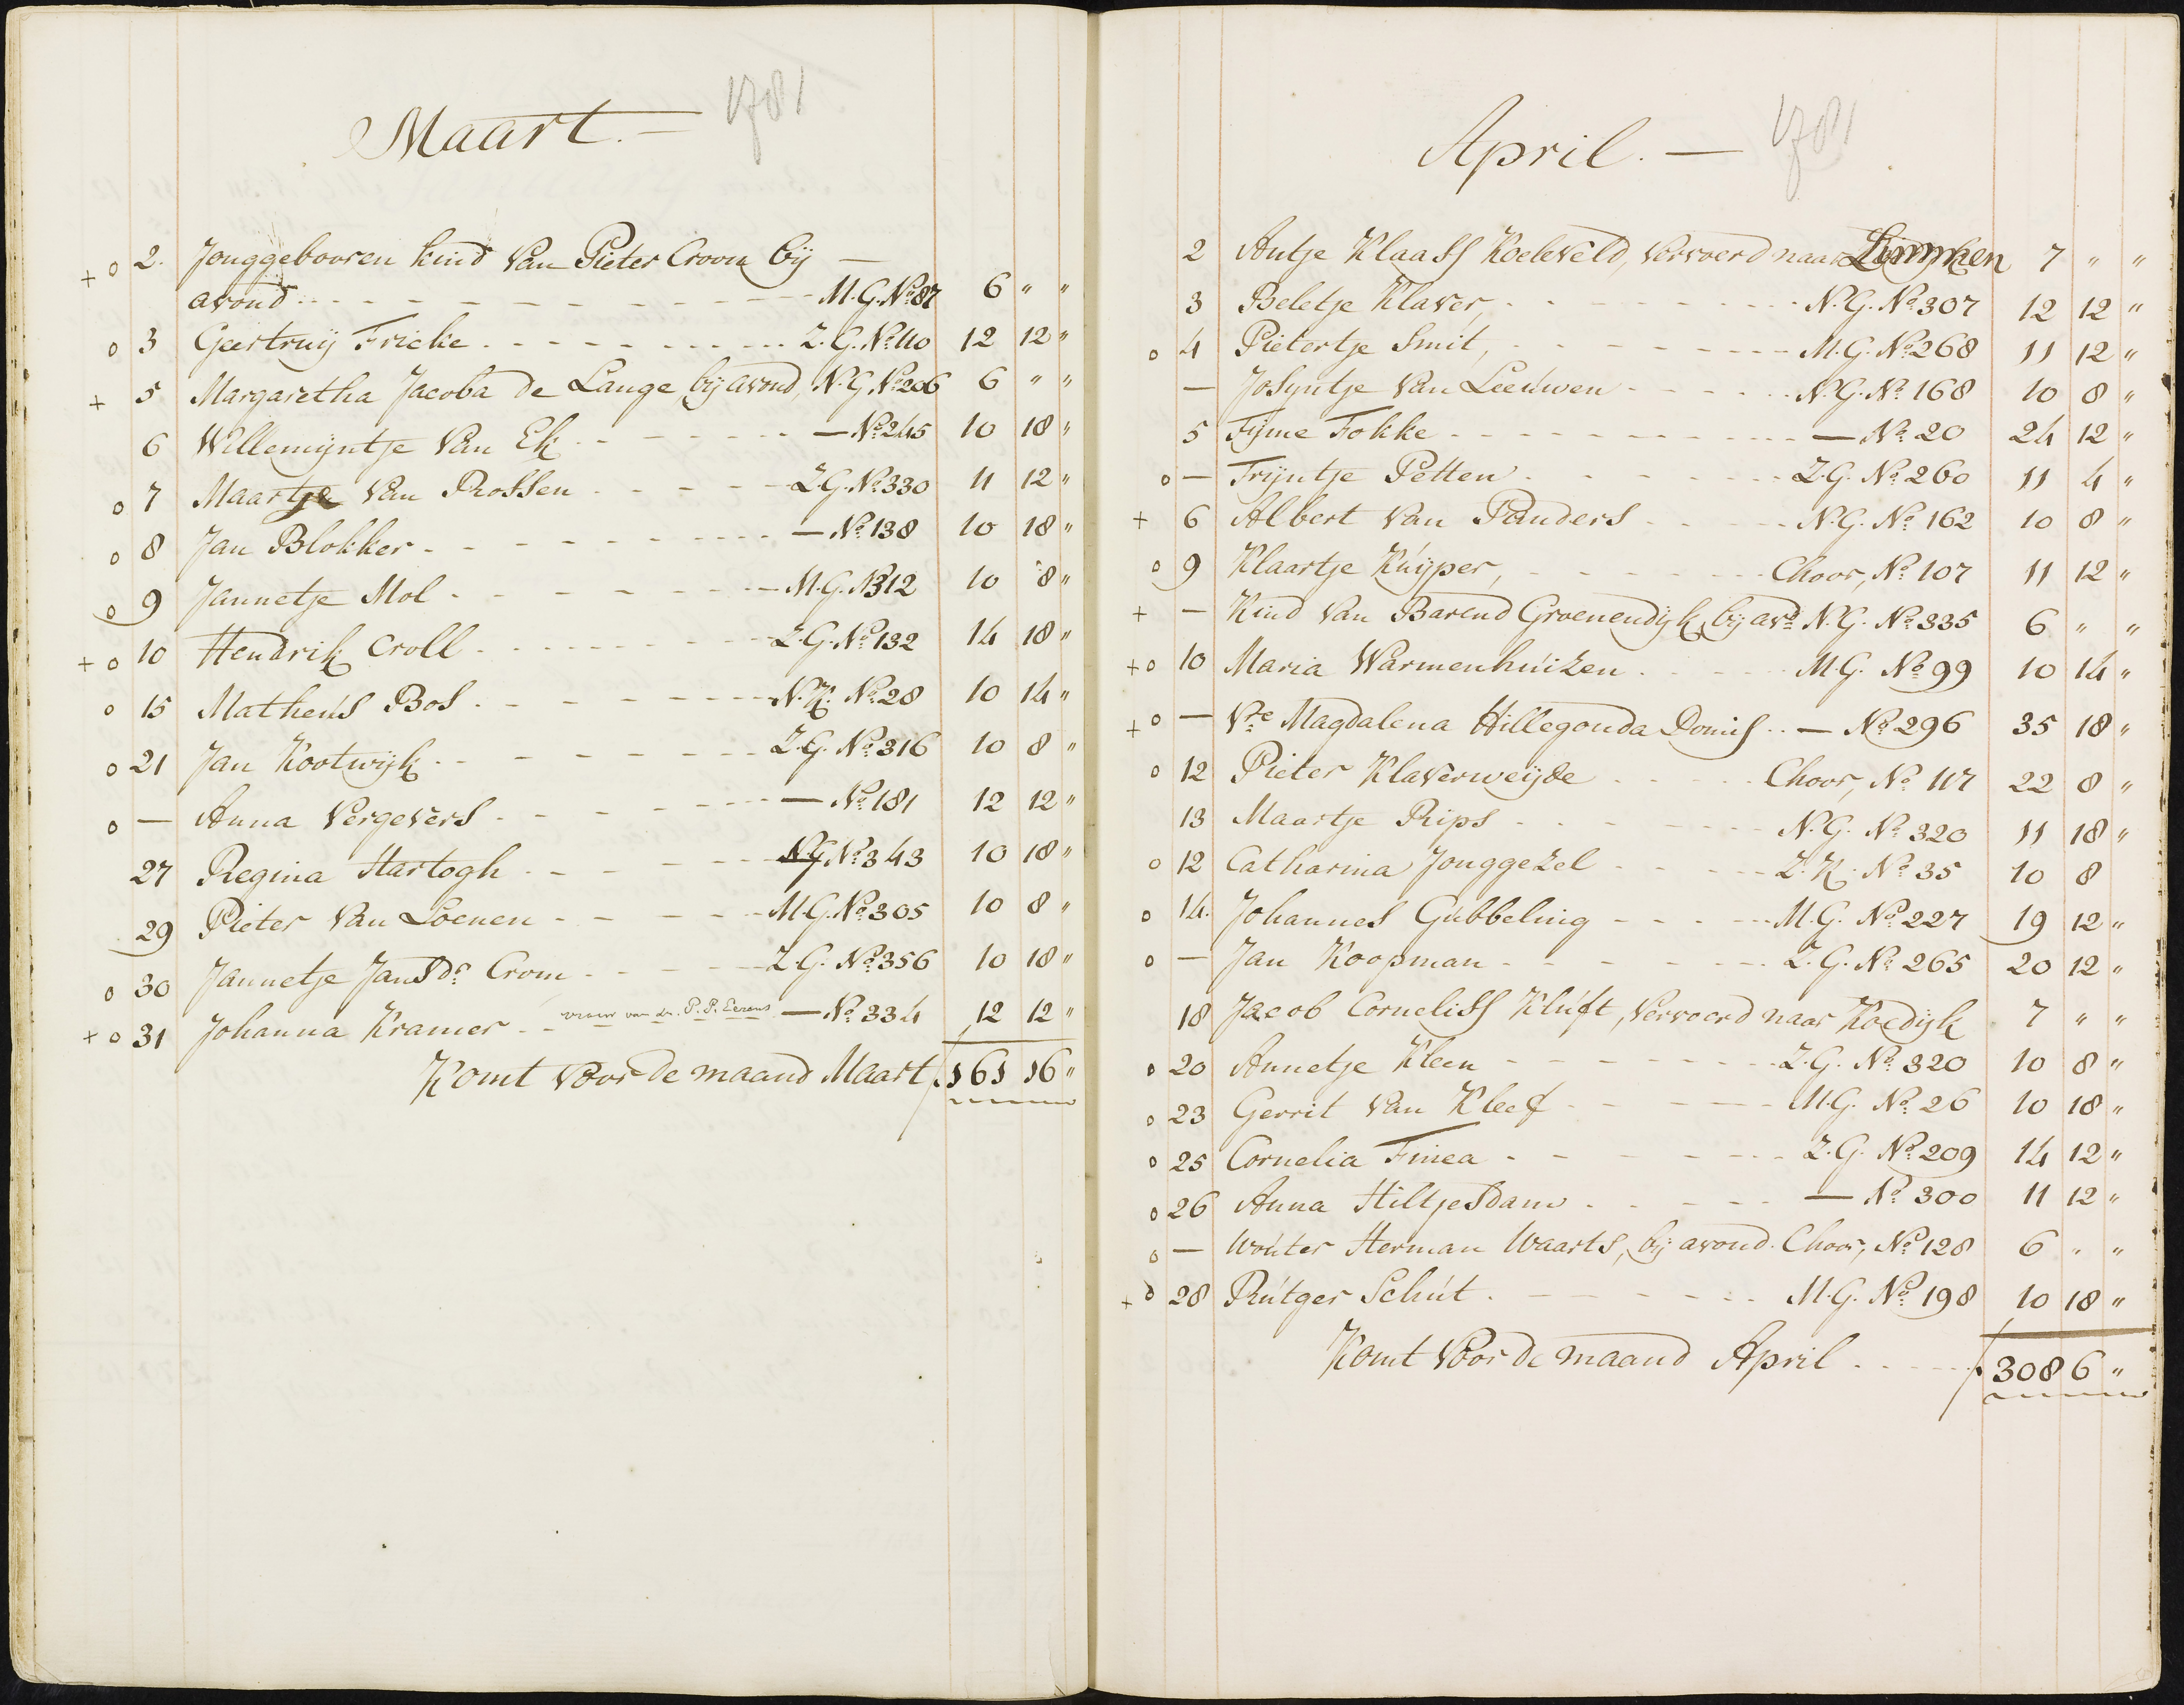 Maart. — 1781
+ o 2. Jonggebooren kind van Pieter Croon bij —
avond - - - M.G. No. 87 6 " "
o 3 Geertruij Fricke - - - Z.G. No. 110 12 12 "
+ 5 Margaretha Jacoba de Lange, bij avond, N.G. No. 206 6 " "
6 Willemijntje van Ek - - - — No. 245 10 18 "
o 7 Maartje van Rossen - - - Z.G. No. 330 11 12 "
o 8 Jan Blokker - - - — No. 138 10 18 "
o 9 Jannetje Mol - - - M.G. No. 312 10 8 "
+ o 10 Hendrik Croll - - - Z.G. No. 132 14 18 "
o 15 Matheus Bos - - - N.K. No. 28 10 14 "
o 21 Jan Kootwijk - - - Z.G. No. 316 10 8 "
o — Anna Vergevers - - - — No. 181 12 12 "
27 Regina Hartogh - - - N.G. No. 343 10 18 "
29 Pieter van Loenen - - - M.G. No. 305 10 8 "
o 30 Jannetje Jansdr. Crom - - - Z.G. No. 356 10 18 "
+ o 31 Johanna Kramer - - vrouw van dr. P.P. Eerens — No. 334 12 12 "
Komt voor de maand Maart ƒ 161 16 "
April. — 1781
2 Antje Klaass Koeleveld, vervoerd naar Limmen 7 " "
3 Beletje Klaver, - - - N.G. No. 307 12 12 "
o 4 Pietertje Smit, - - - M.G. No. 268 11 12 "
— Josyntje van Leeuwen - - - N.G. No. 168 10 8 "
5 Fijme Fokke - - - — No. 20 24 12 "
o — Trijntje Petten - - - Z.G. No. 260 11 4 "
+ 6 Albert van Panders - - - N.G. No. 162 10 8 "
o 9 Klaartje Kuijper, - - - Choor, No. 107 11 12 "
+ — Kind van Barend Groenendijk, bij avd. N.G. No. 335 6 " "
+ o 10 Maria Warmenhuizen - - - M.G. No. 99 10 14 "
+ o — Vre. Magdalena Hillegonda Domis - - — No. 296 35 18 "
o 12 Pieter Klaverweijde - - - Choor, No. 117 22 8 "
13 Maartje Rips - - - N.G. No. 320 11 18 "
o 12 Catharina Jonggezel - - - Z.K. No. 35 10 8
o 14. Johannes Gubbeling - - - M.G. No. 227 19 12 "
o — Jan Koopman - - - Z.G. No. 265 20 12 "
18 Jacob Corneliss Kluft, vervoerd naar Koedijk 7 " "
o 20 Annetje Kleen - - - Z.G. No. 320 10 8 "
o 23 Gerrit van Kleef - - - M.G. No. 26 10 18 "
o 25 Cornelia Finea - - - Z.G. No. 209 14 12 "
o 26 Anna Hiltjesdam - - - — No. 300 11 12 "
o — Wouter Herman Waarts, bij avond. Choor, No. 128 6 " "
+ o 28 Rutger Schut - - - M.G. No. 198 10 18 "
Komt voor de maand April - - - ƒ 308 6 "